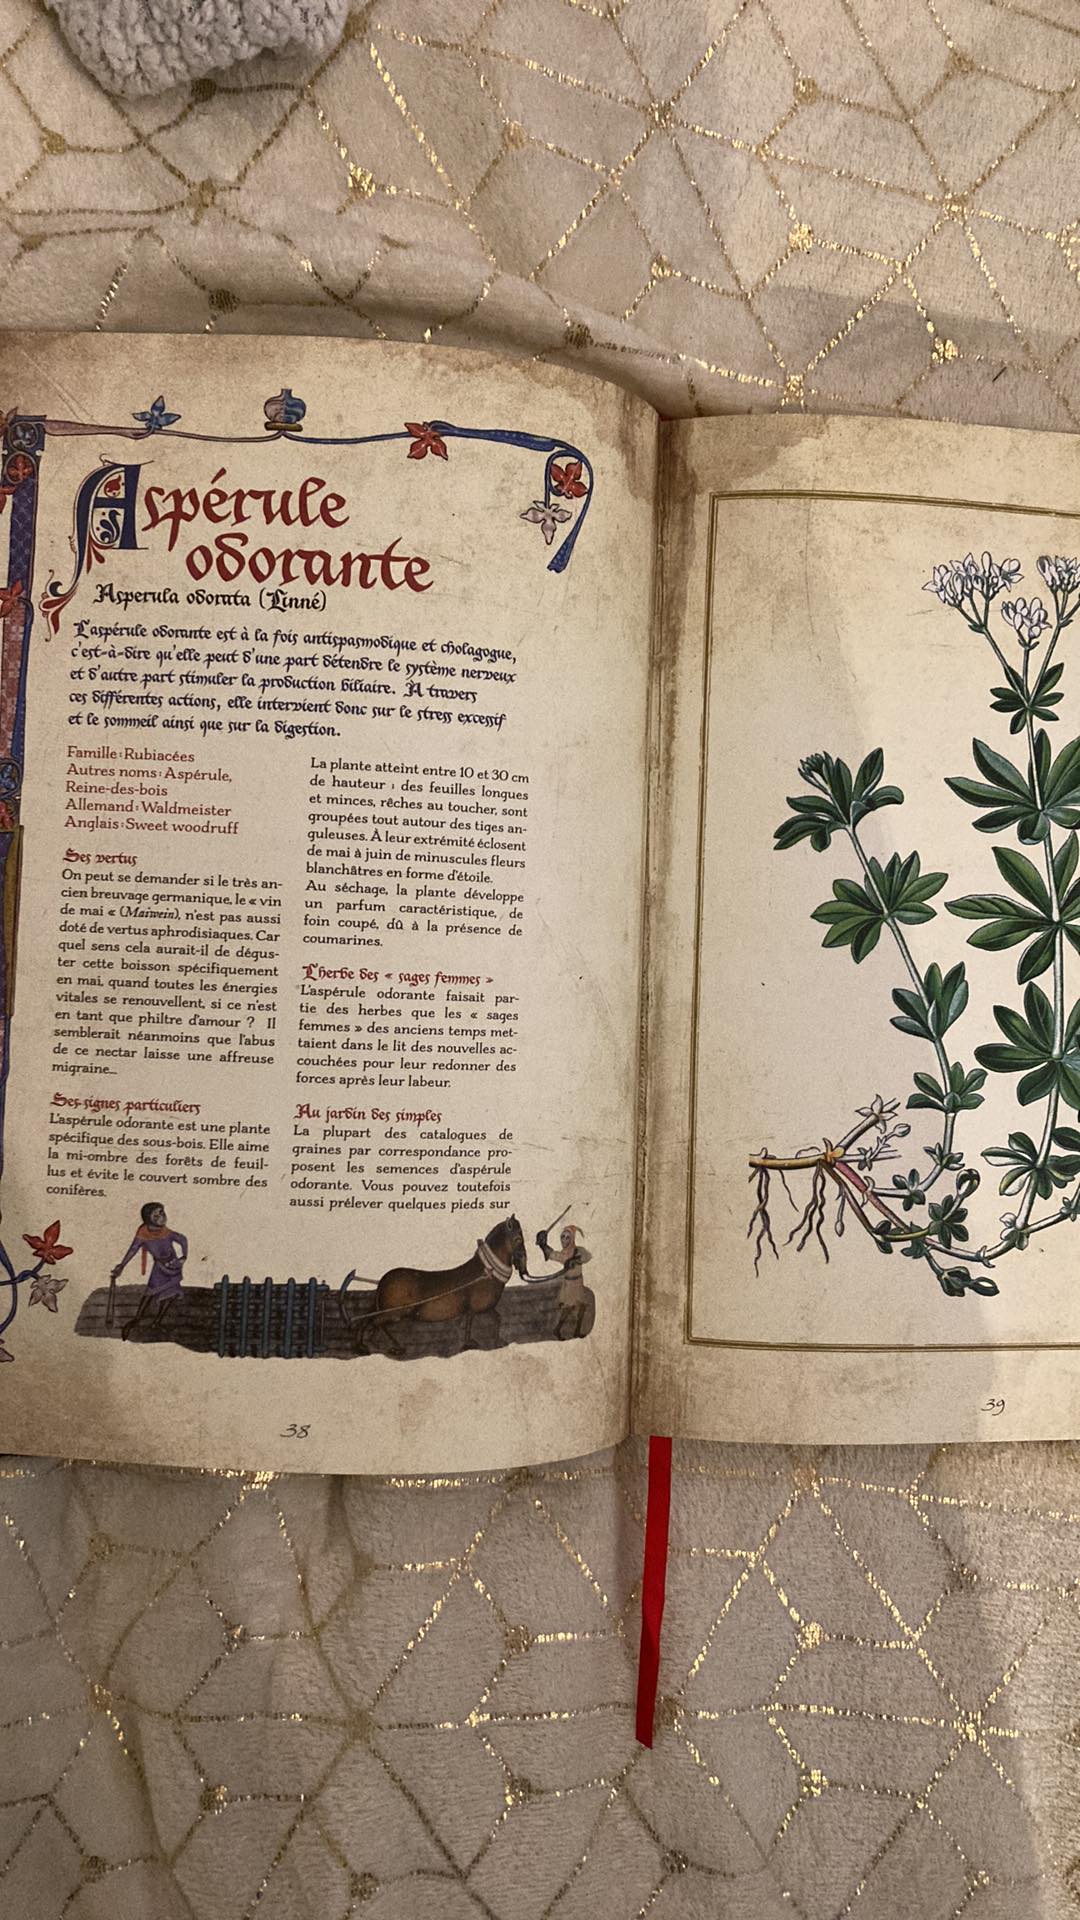 Aspérule
odorante
Asperula odorata (Linné)
L'aspérule odorante est à la fois antispasmodique et cholagogue,
c'est-à-dire qu'elle peut d'une part détendre le système nerveux
et d'autre part stimuler la production biliaire. À travers
ces différentes actions, elle intervient donc sur le stress excessif
et le sommeil ainsi que sur la digestion.
Famille : Rubiacées
Autres noms : Aspérule,
Reine-des-bois
Allemand : Waldmeister
Anglais : Sweet woodruff
Ses vertus
On peut se demander si le très an-
cien breuvage germanique, le « vin
de mai « (Maiwein), n'est pas aussi
doté de vertus aphrodisiaques. Car
quel sens cela aurait-il de dégus-
ter cette boisson spécifiquement
en mai, quand toutes les énergies
vitales se renouvellent, si ce n'est
en tant que philtre d'amour ? Il
semblerait néanmoins que l'abus
de ce nectar laisse une affreuse
migraine...
Ses signes particuliers
L'aspérule odorante est une plante
spécifique des sous-bois. Elle aime
la mi-ombre des forêts de feuil-
lus et évite le couvert sombre des
conifères.
La plante atteint entre 10 et 30 cm
de hauteur ; des feuilles longues
et minces, rêches au toucher, sont
groupées tout autour des tiges an-
guleuses. À leur extrémité éclosent
de mai à juin de minuscules fleurs
blanchâtres en forme d'étoile.
Au séchage, la plante développe
un parfum caractéristique, de
foin coupé, dû à la présence de
coumarines.
L'herbe des « sages femmes »
L'aspérule odorante faisait par-
tie des herbes que les « sages
femmes » des anciens temps met-
taient dans le lit des nouvelles ac-
couchées pour leur redonner des
forces après leur labeur.
Au jardin des simples
La plupart des catalogues de
graines par correspondance pro-
posent les semences d'aspérule
odorante. Vous pouvez toutefois
aussi prélever quelques pieds sur
38
39